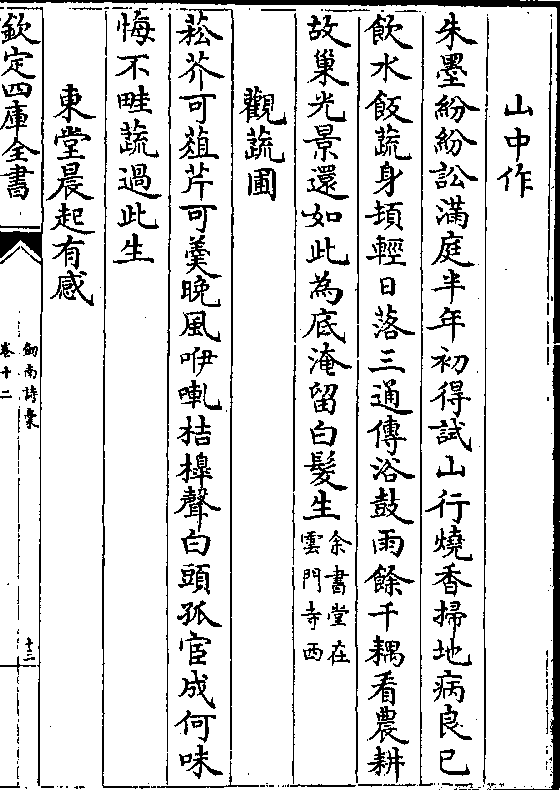 山中作
朱墨紛紛訟滿庭半年初得試山行燒香掃地病良已
飲水飯蔬身頓輕日落三通傳浴鼓雨餘千耦看農耕
故巢光景還如此為底淹留白髮生余書堂在
雲門寺西
觀蔬圃
菘芥可葅芹可羹晚風咿軋桔橰聲白頭孤宦成何味
悔不畦蔬過此生
東堂晨起有感
欽定四庫全書
劒南詩稾
卷十二
十二